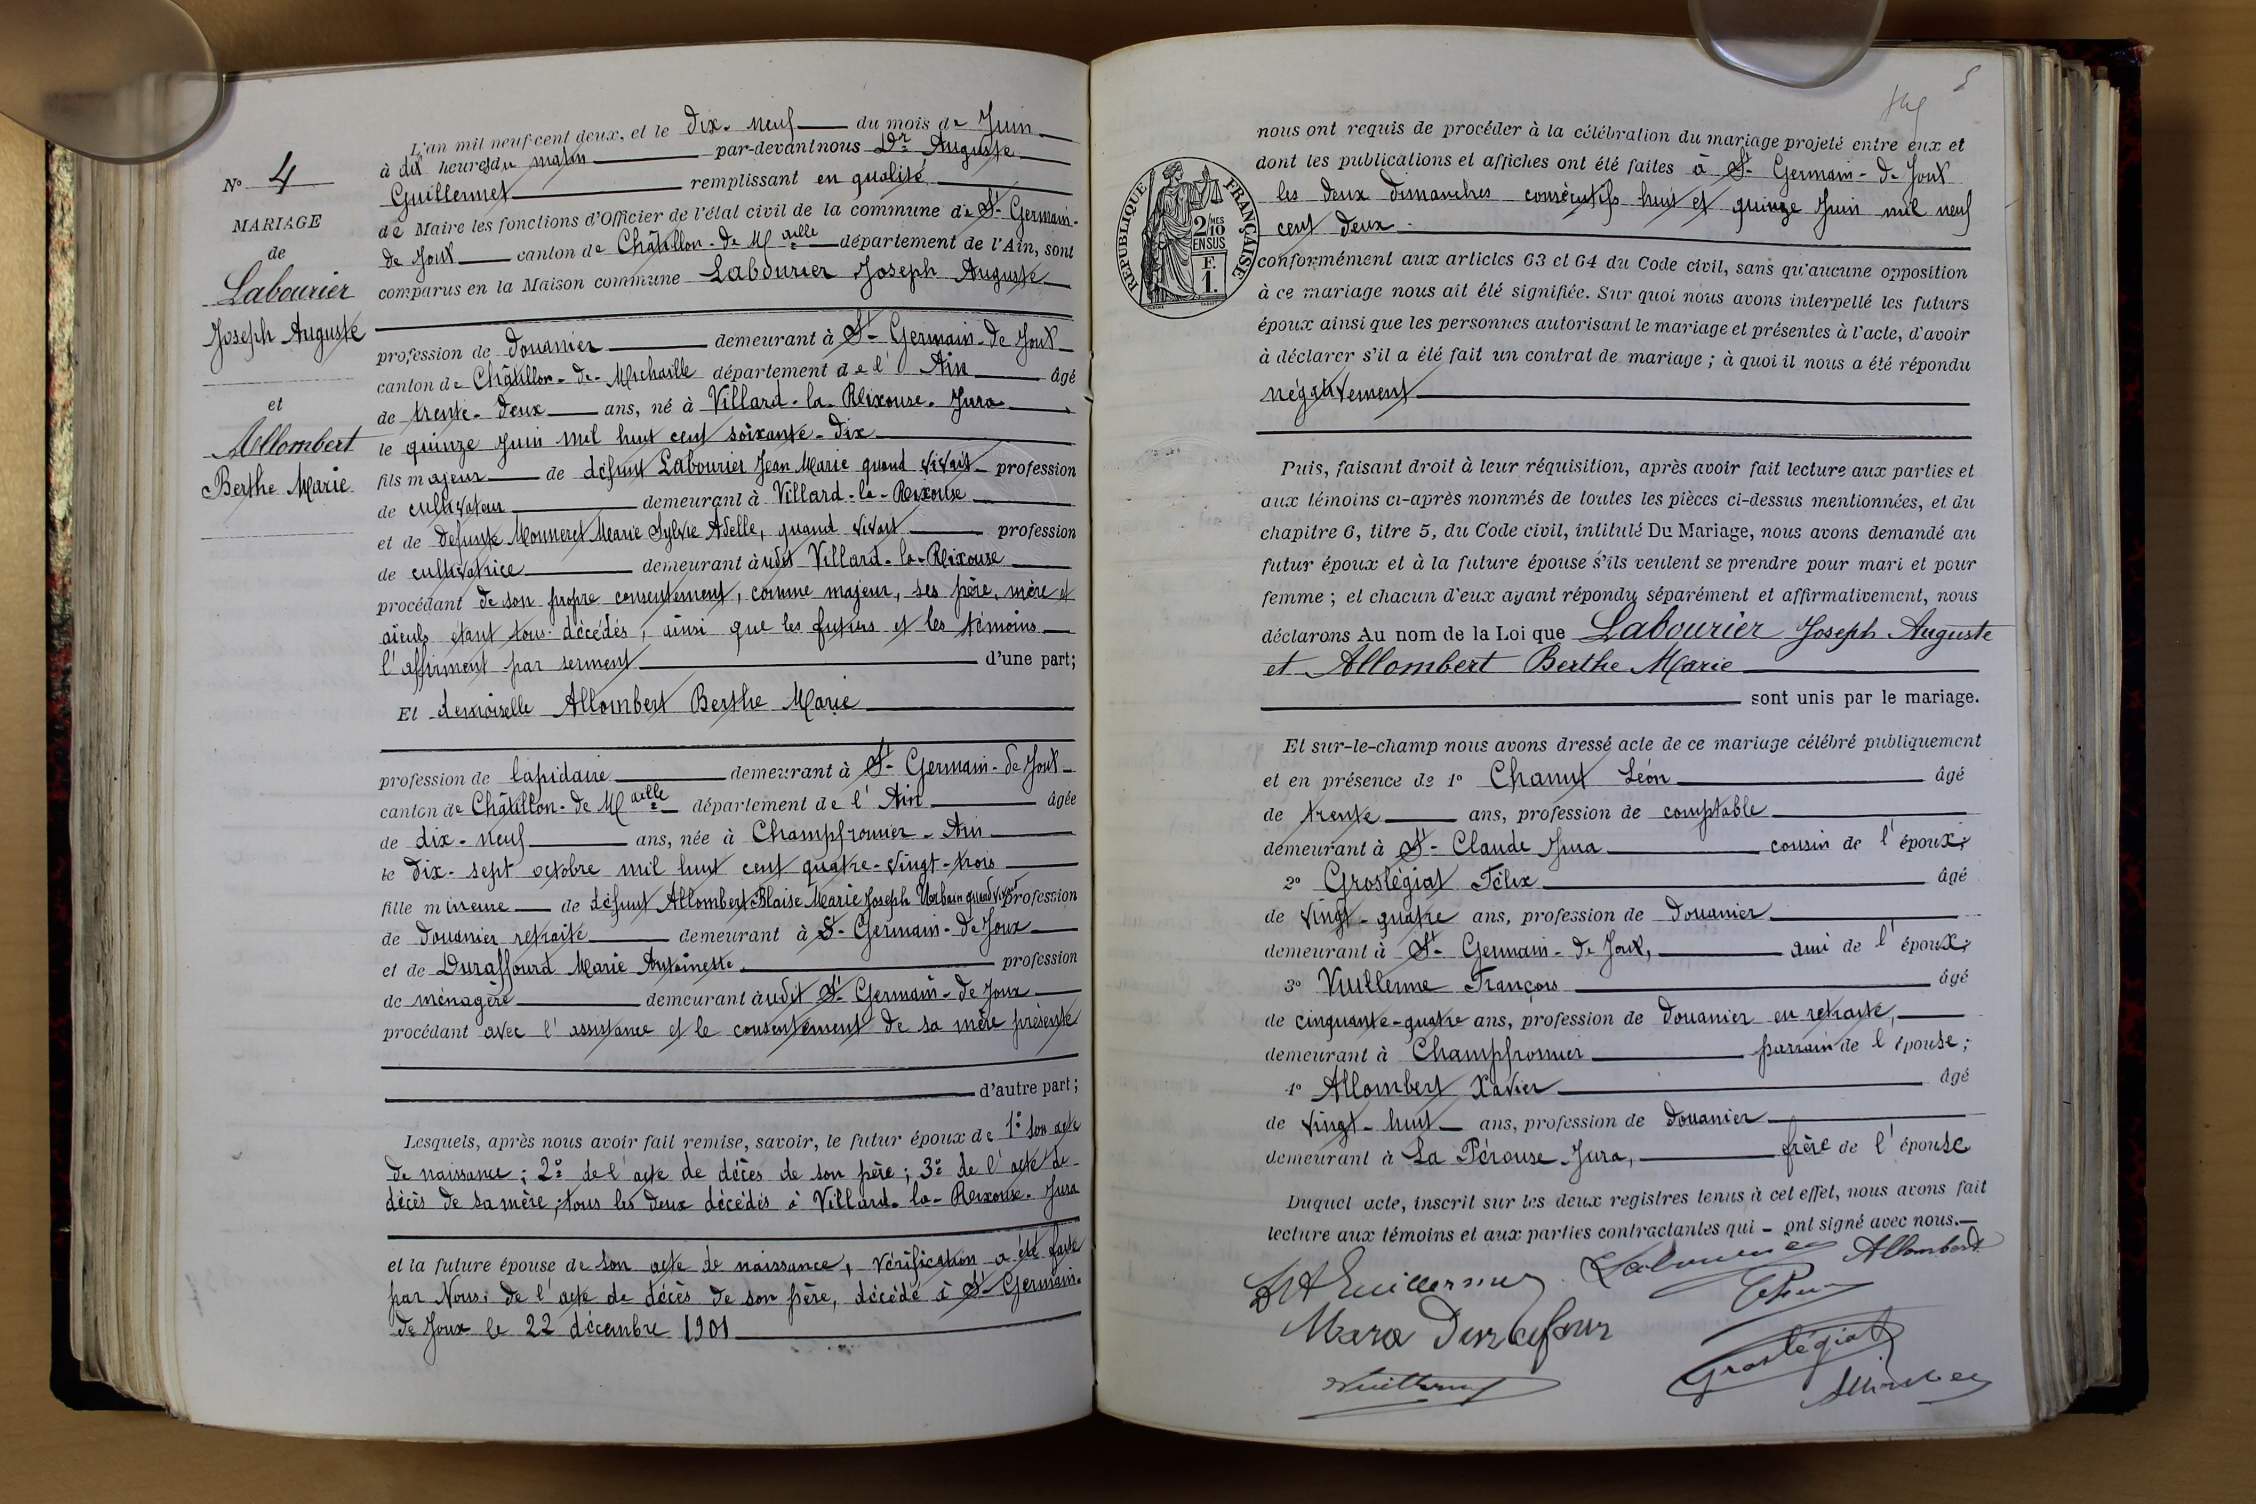 N° 4
MARIAGE
de
Labourier
Joseph Auguste
et
Allombert
Berthe Marie
L'an mil neuf cent deux, et le dix-neuf du mois de Juin
à dix heures du matin par-devant nous Dr Auguste
Guillermet remplissant en qualité
de Maire les fonctions d'Officier de l'état civil de la commune de St-Germain-
de Joux canton de Châtillon-de Maille département de l'Ain, sont
comparus en la Maison commune Labourier Joseph Auguste
profession de douanier demeurant à St-Germain-de Joux
canton de Châtillon-de-Michaille département de l'Ain âgé
de trente-deux ans, né à Villard-la-Rixouse-Jura
le quinze Juin mil huit cent soixante-dix
fils majeur de défunt Labourier Jean Marie quand vivait profession
de cultivateur demeurant à Villard-la-Rixouse
et de défunte Monneret Marie Sylvie Adelle, quand vivait profession
de cultivatrice demeurant àudit Villard-la-Rixouse
procédant de son propre consentement, comme majeur, ses père, mère et
aïeuls étant tous décédés, ainsi que les futurs et les témoins
l'affirment par serment d'une part;
Et demoiselle Allombert Berthe Marie
profession de lapidaire demeurant à St-Germain-de Joux
canton de Châtillon-de Maille département de l'Ain âgée
de dix-neuf ans, née à Champfromier-Ain
le dix-sept octobre mil huit cent quatre-vingt-trois
fille mineure de défunt Allombert Blaise Marie Joseph Urbain quand vivait profession
de douanier retraité demeurant à St-Germain-de Joux
et de Duraffourd Marie Antoinette profession
de ménagère demeurant àudit St Germain-de Joux
procédant avec l'assistance et le consentement de sa mère présente
d'autre part;
Lesquels, après nous avoir fait remise, savoir, le futur époux de 1° son acte
de naissance; 2° de l'acte de décès de son père; 3° de l'acte de
décès de sa mère; tous les deux décédés à Villard-la-Rixouse-Jura
et la future épouse de son acte de naissance, vérification a été faite
par Nous; de l'acte de décès de son père, décédé à St-Germain-
de Joux le 22 décembre 1901
5
nous ont requis de procéder à la célébration du mariage projeté entre eux et
dont les publications et affiches ont été faites à St-Germain-de Joux
les deux dimanches consécutifs huit et quinze Juin mil neuf
cent deux.
RÉPUBLIQUE FRANÇAISE
2/10 MES
EN SUS
F.
1.
conformément aux articles 63 et 64 du Code civil, sans qu'aucune opposition
à ce mariage nous ait été signifiée. Sur quoi nous avons interpellé les futurs
époux ainsi que les personnes autorisant le mariage et présentes à l'acte, d'avoir
à déclarer s'il a été fait un contrat de mariage; à quoi il nous a été répondu
négativement
Puis, faisant droit à leur réquisition, après avoir fait lecture aux parties et
aux témoins ci-après nommés de toutes les pièces ci-dessus mentionnées, et du
chapitre 6, titre 5, du Code civil, intitulé Du Mariage, nous avons demandé au
futur époux et à la future épouse s'ils veulent se prendre pour mari et pour
femme; et chacun d'eux ayant répondu séparément et affirmativement, nous
déclarons Au nom de la Loi que Labourier Joseph Auguste
et Allombert Berthe Marie
sont unis par le mariage.
Et sur-le-champ nous avons dressé acte de ce mariage célébré publiquement
et en présence de 1° Chanut Léon âgé
de trente ans, profession de comptable
demeurant à St-Claude Jura cousin de l'époux;
2° Groslégiat Félix âgé
de vingt-quatre ans, profession de douanier
demeurant à St-Germain-de Joux, ami de l'époux;
3° Vuillerme François âgé
de cinquante-quatre ans, profession de douanier en retraite,
demeurant à Champfromier parrain de l'épouse;
4° Allombert Xavier âgé
de vingt-huit ans, profession de douanier
demeurant à La Pérouse-Jura, frère de l'épouse
Duquel acte, inscrit sur les deux registres tenus à cet effet, nous avons fait
lecture aux témoins et aux parties contractantes qui - ont signé avec nous.
Dr A Guillermet Labourier Allombert
Marie Durafour
Groslégiat
Vuillerme